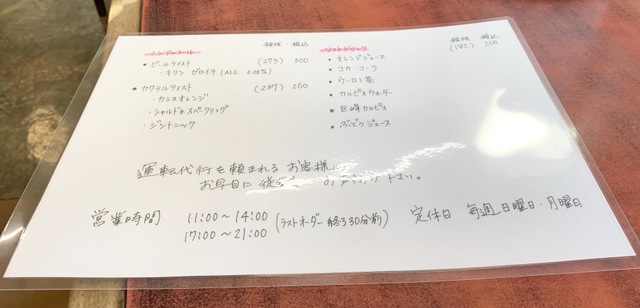 ノンアルコール 税抜 税込
・ビールテイスト (273) 300
・キリン ゼロイチ (ALC. 0.00%)
・カクテルテイスト (237) 260
・カシスオレンジ
・シャルドネスパークリング
・ジントニック
ソフトドリンク 税抜 税込
(182) 200
・オレンジジュース
・コカ・コーラ
・ウーロン茶
・カルピスウォーター
・巨峰カルピス
・ぶどうジュース
運転代行を頼まれるお客様に
お早目に 下さい。
営業時間 11:00〜14:00 (ラストオーダー 終了30分前) 定休日 毎週 日曜日・月曜日
17:00〜21:00